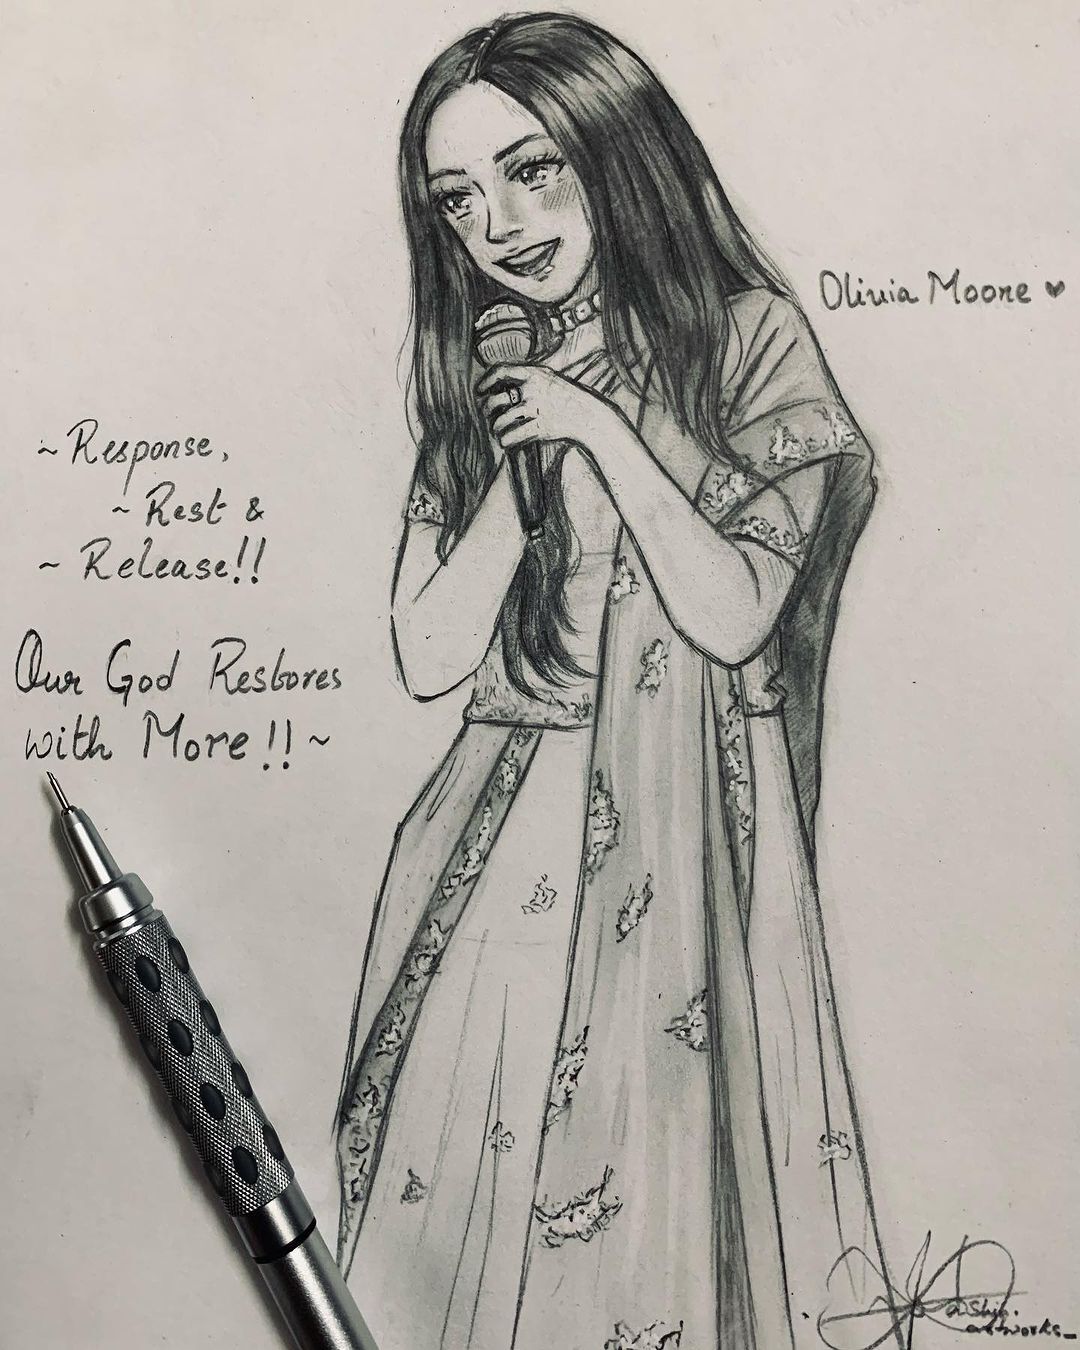 Olivia Moore ♥
~ Response,
~ Rest &
~ Release!!
Our God Restores
with More!! ~
artworks_